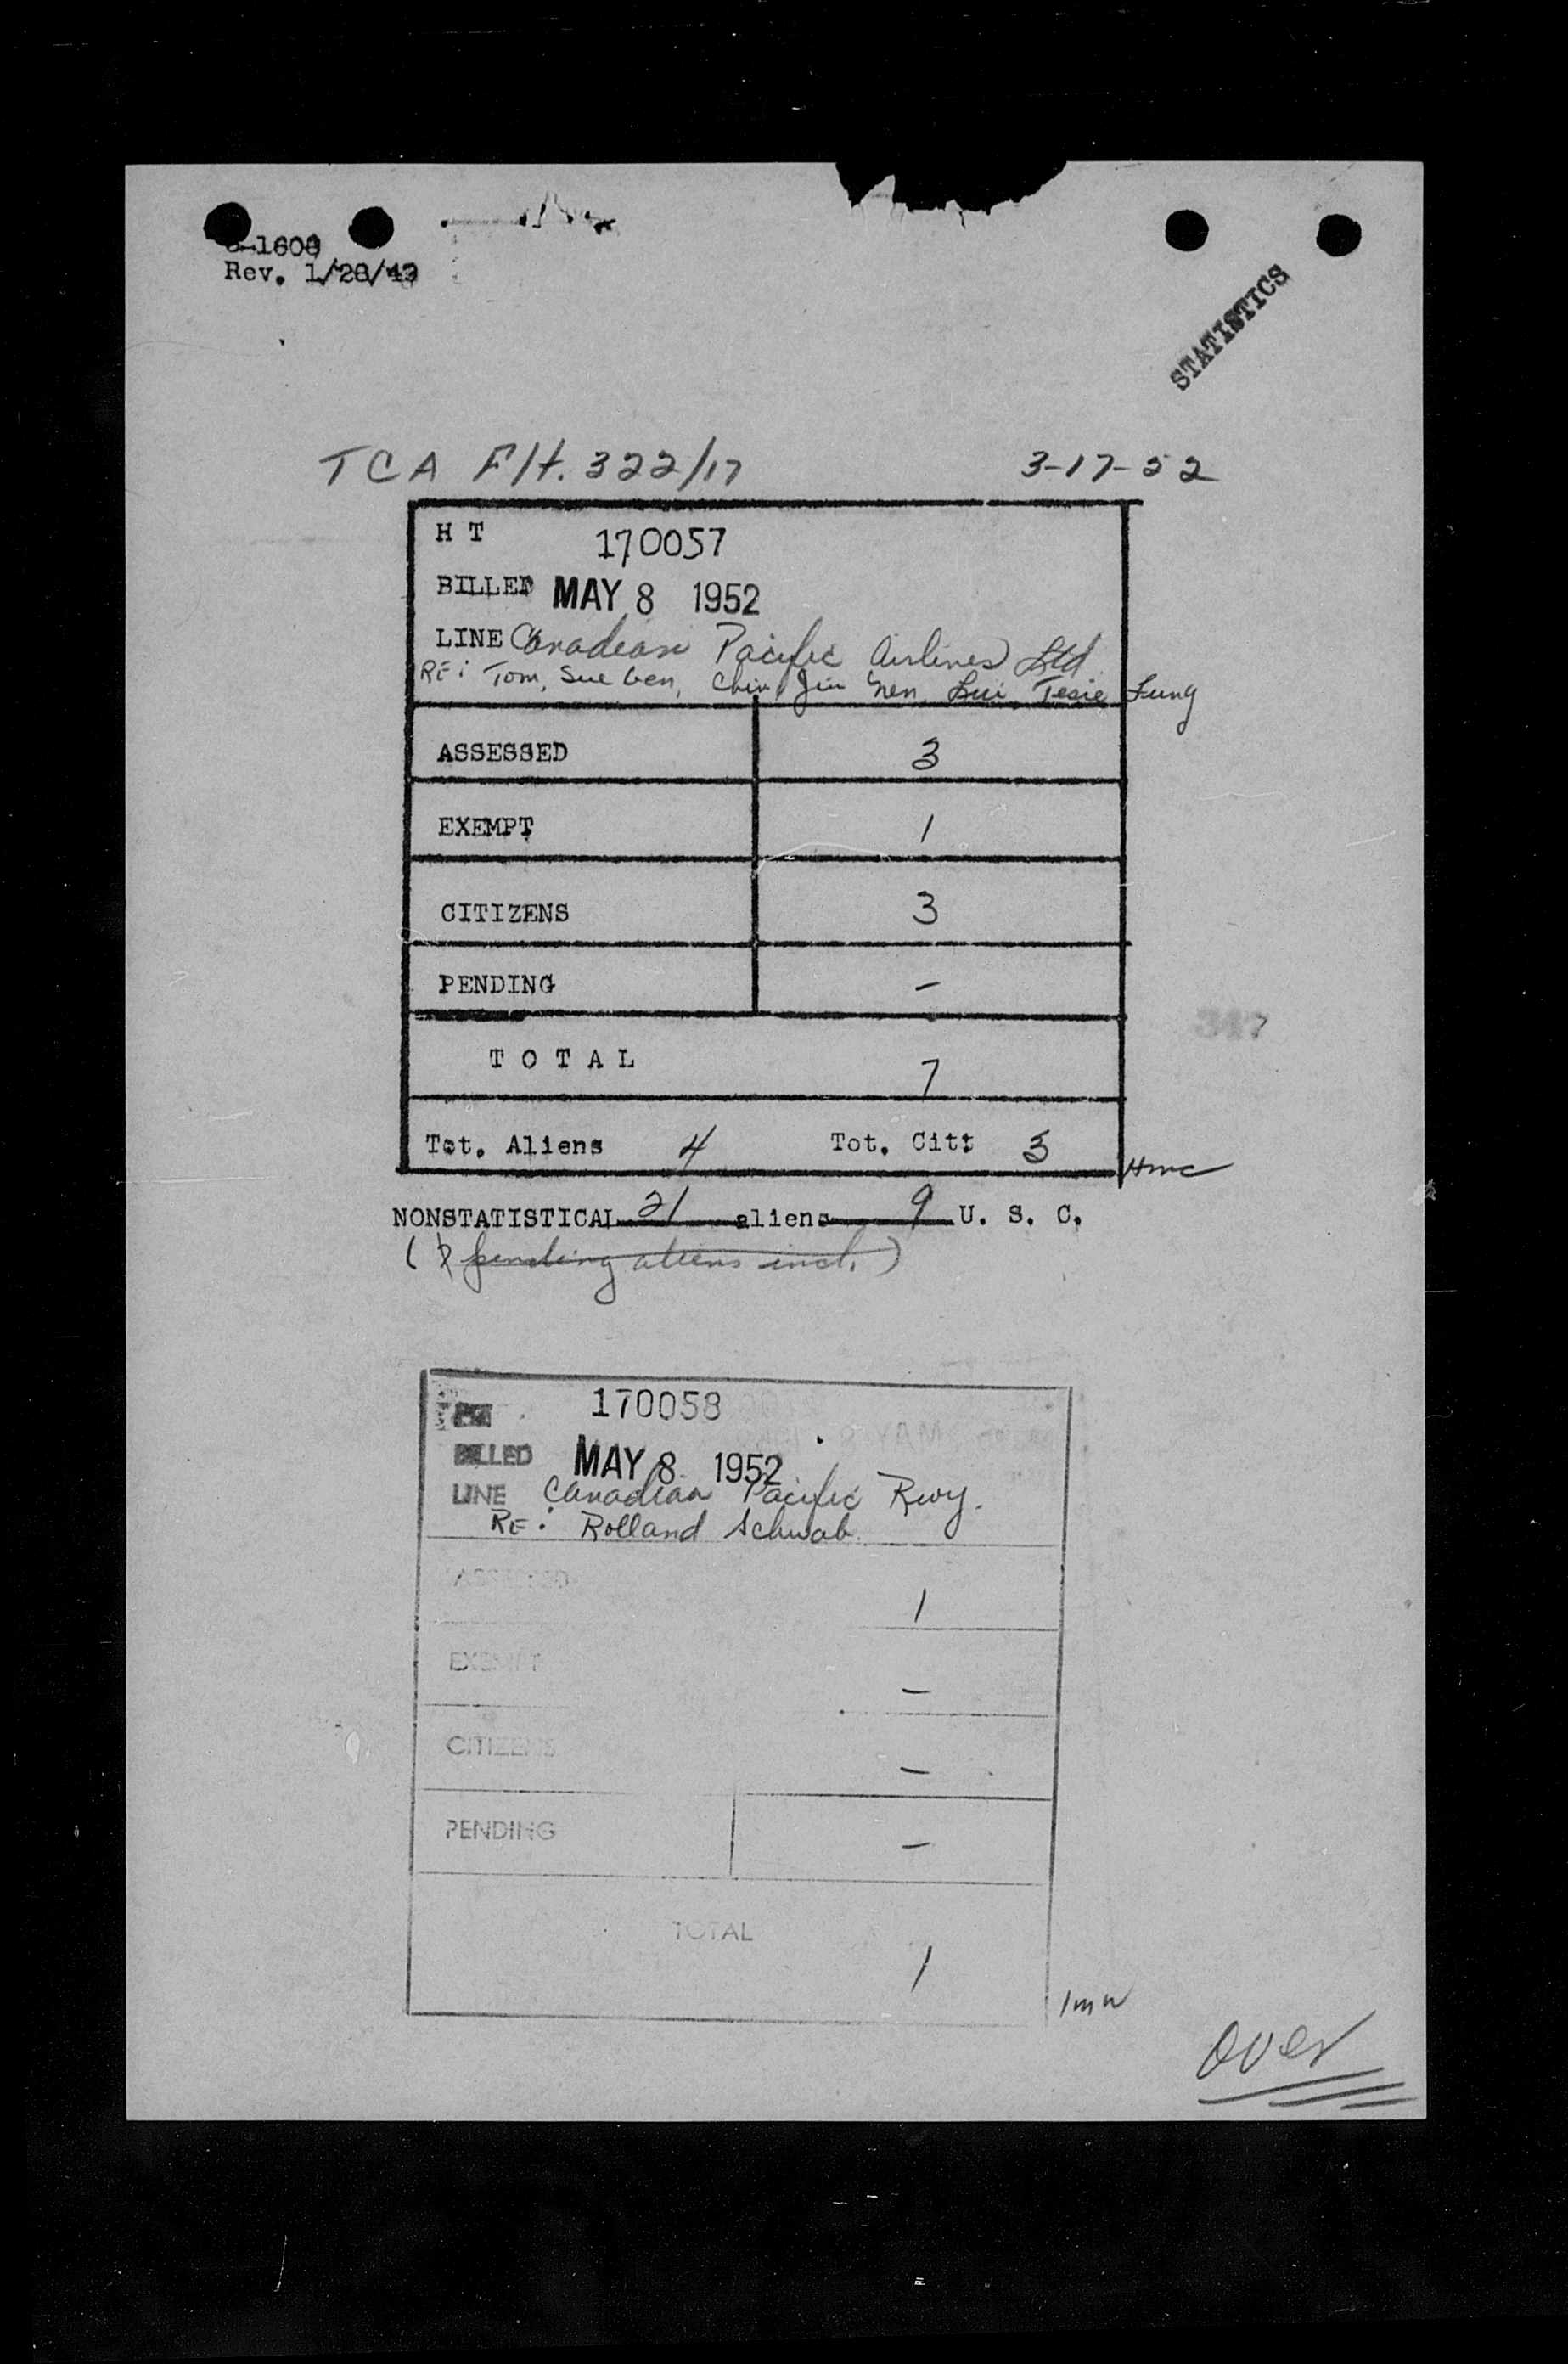 -1608
Rev. 1/28/49
STATISTICS
TCA Flt. 322/17 3-17-52
H T 170057
BILLED MAY 8 1952
LINE Canadian Pacific Airlines Ltd
RE: Tom, Sue Gen, Chin Jin Nen, Lui, Tesie Fung
ASSESSED 3
EXEMPT 1
CITIZENS 3
PENDING –
347
T O T A L 7
Tot. Aliens 4 Tot. Cit: 3
Hmc
NONSTATISTICAL 21 aliens 9 U. S. C.
( pending aliens incl. )
170058
BILLED MAY 8 1952
LINE Canadian Pacific Rwy.
RE: Rolland Schwab
ASSESSED 1
EXEMPT –
CITIZENS –
PENDING –
TOTAL 1
over